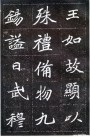 王如故顯以
殊禮備物九
錫謚曰武穆